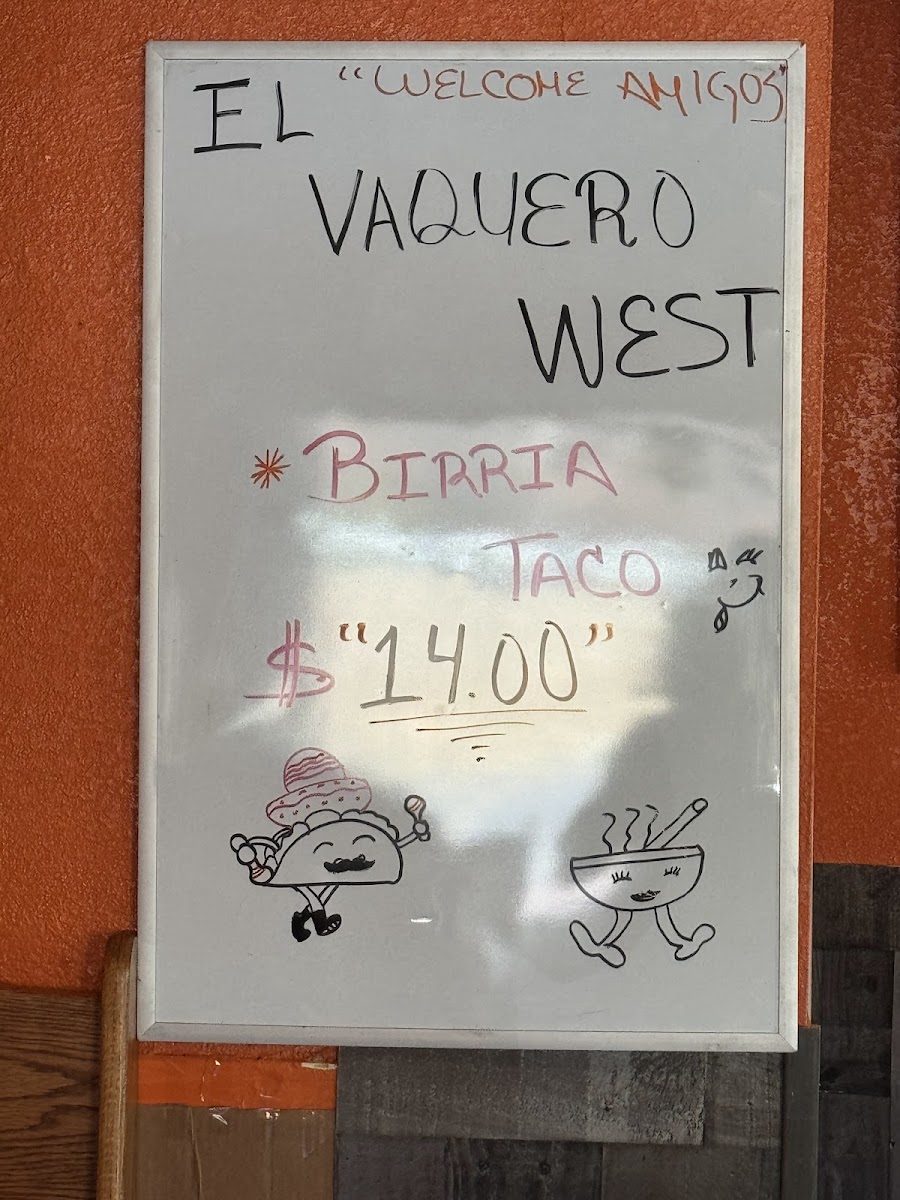 "WELCOME AMIGOS"
EL
VAQUERO
WEST
* BIRRIA
TACO
$ "14.00"